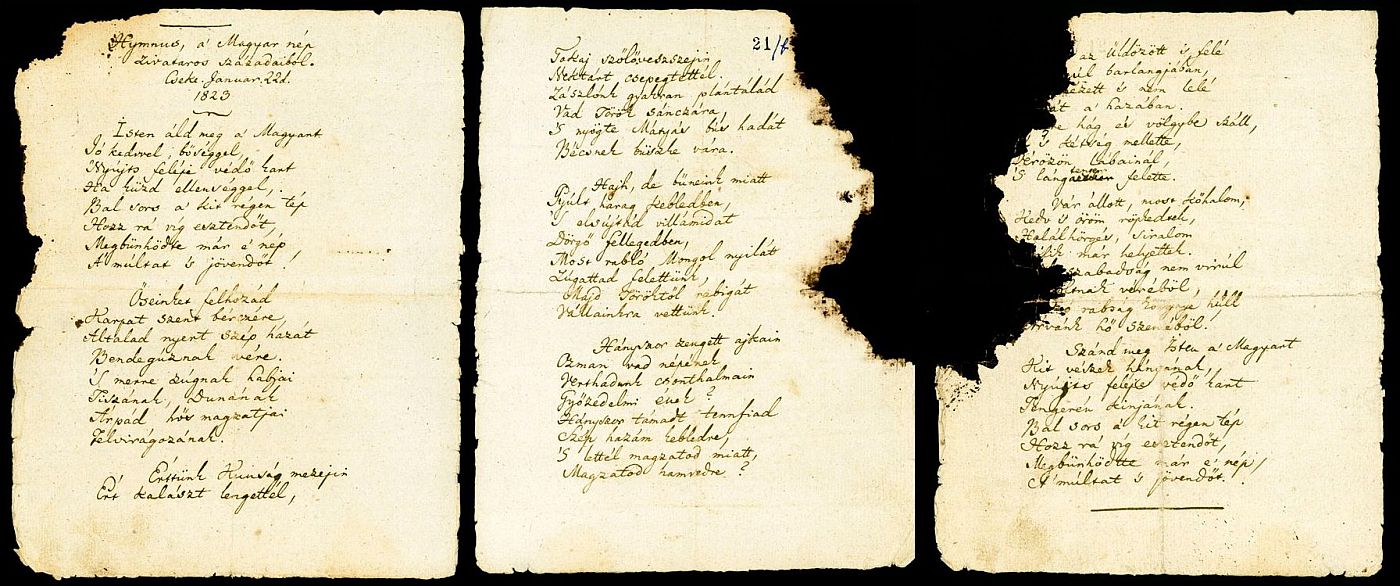 Hymnus, a' Magyar nép
zivataros századaiból.
Cseke. Januar. 22d.
1823
Isten áld meg a' Magyart
Jó kedvvel, bőséggel,
Nyújts feléje védő kart
Ha küzd ellenséggel,
Bal sors a' kit régen tép
Hozz rá víg esztendőt,
Megbünhödte már e' nép
A' múltat 's jövendőt!
Őseinket felhozád
Kárpát szent bérczére,
Általad nyert szép hazát
Bendegúznak vére.
'S merre zúgnak habjai
Tiszának, Dunának
Árpád hős magzatjai
Felvirágozának.
Értünk Kunság mezején
Ért kalászt lengettél,
21/
Tokaj szőlővesszején
Nektárt csepegtettél.
Zászlónk gyakran plántálád
Vad Török sánczára,
'S nyögte Mátyás bús hadát
Bécsnek büszke vára.
Hajh, de bűneink miatt
Gyúlt harag kebledben,
'S elsújtád villámidat
Dörgő fellegedben,
Most rabló Mongol nyilát
Zúgattad felettünk,
Majd Töröktől rabigát
Vállainkra vettünk.
Hányszor zengett ajkain
Ozman vad népének
Vert hadunk csonthalmain
Győzedelmi ének?
Hányszor támadt tennfiad
Szép hazám kebledre,
'S lettél magzatod miatt,
Magzatod hamvedre?
az üldözött 's felé
barlangjában,
's nem lelé
a' hazában.
hág és völgybe száll,
's kétség mellette,
Vérözön lábainál,
'S lángtenger felette.
Vár állott, most kőhalom,
Kedv 's öröm röpkedtek,
Halálhörgés, siralom
már helyettek.
szabadság nem virúl
véréből,
rabság könnye hull
hő szeméből.
Szánd meg Isten a' Magyart
Kit vészek hányának,
Nyújts feléje védő kart
Tengerén kínjának.
Bal sors a' kit régen tép
Hozz rá víg esztendőt,
Megbünhödte már e' nép
A' múltat 's jövendőt!